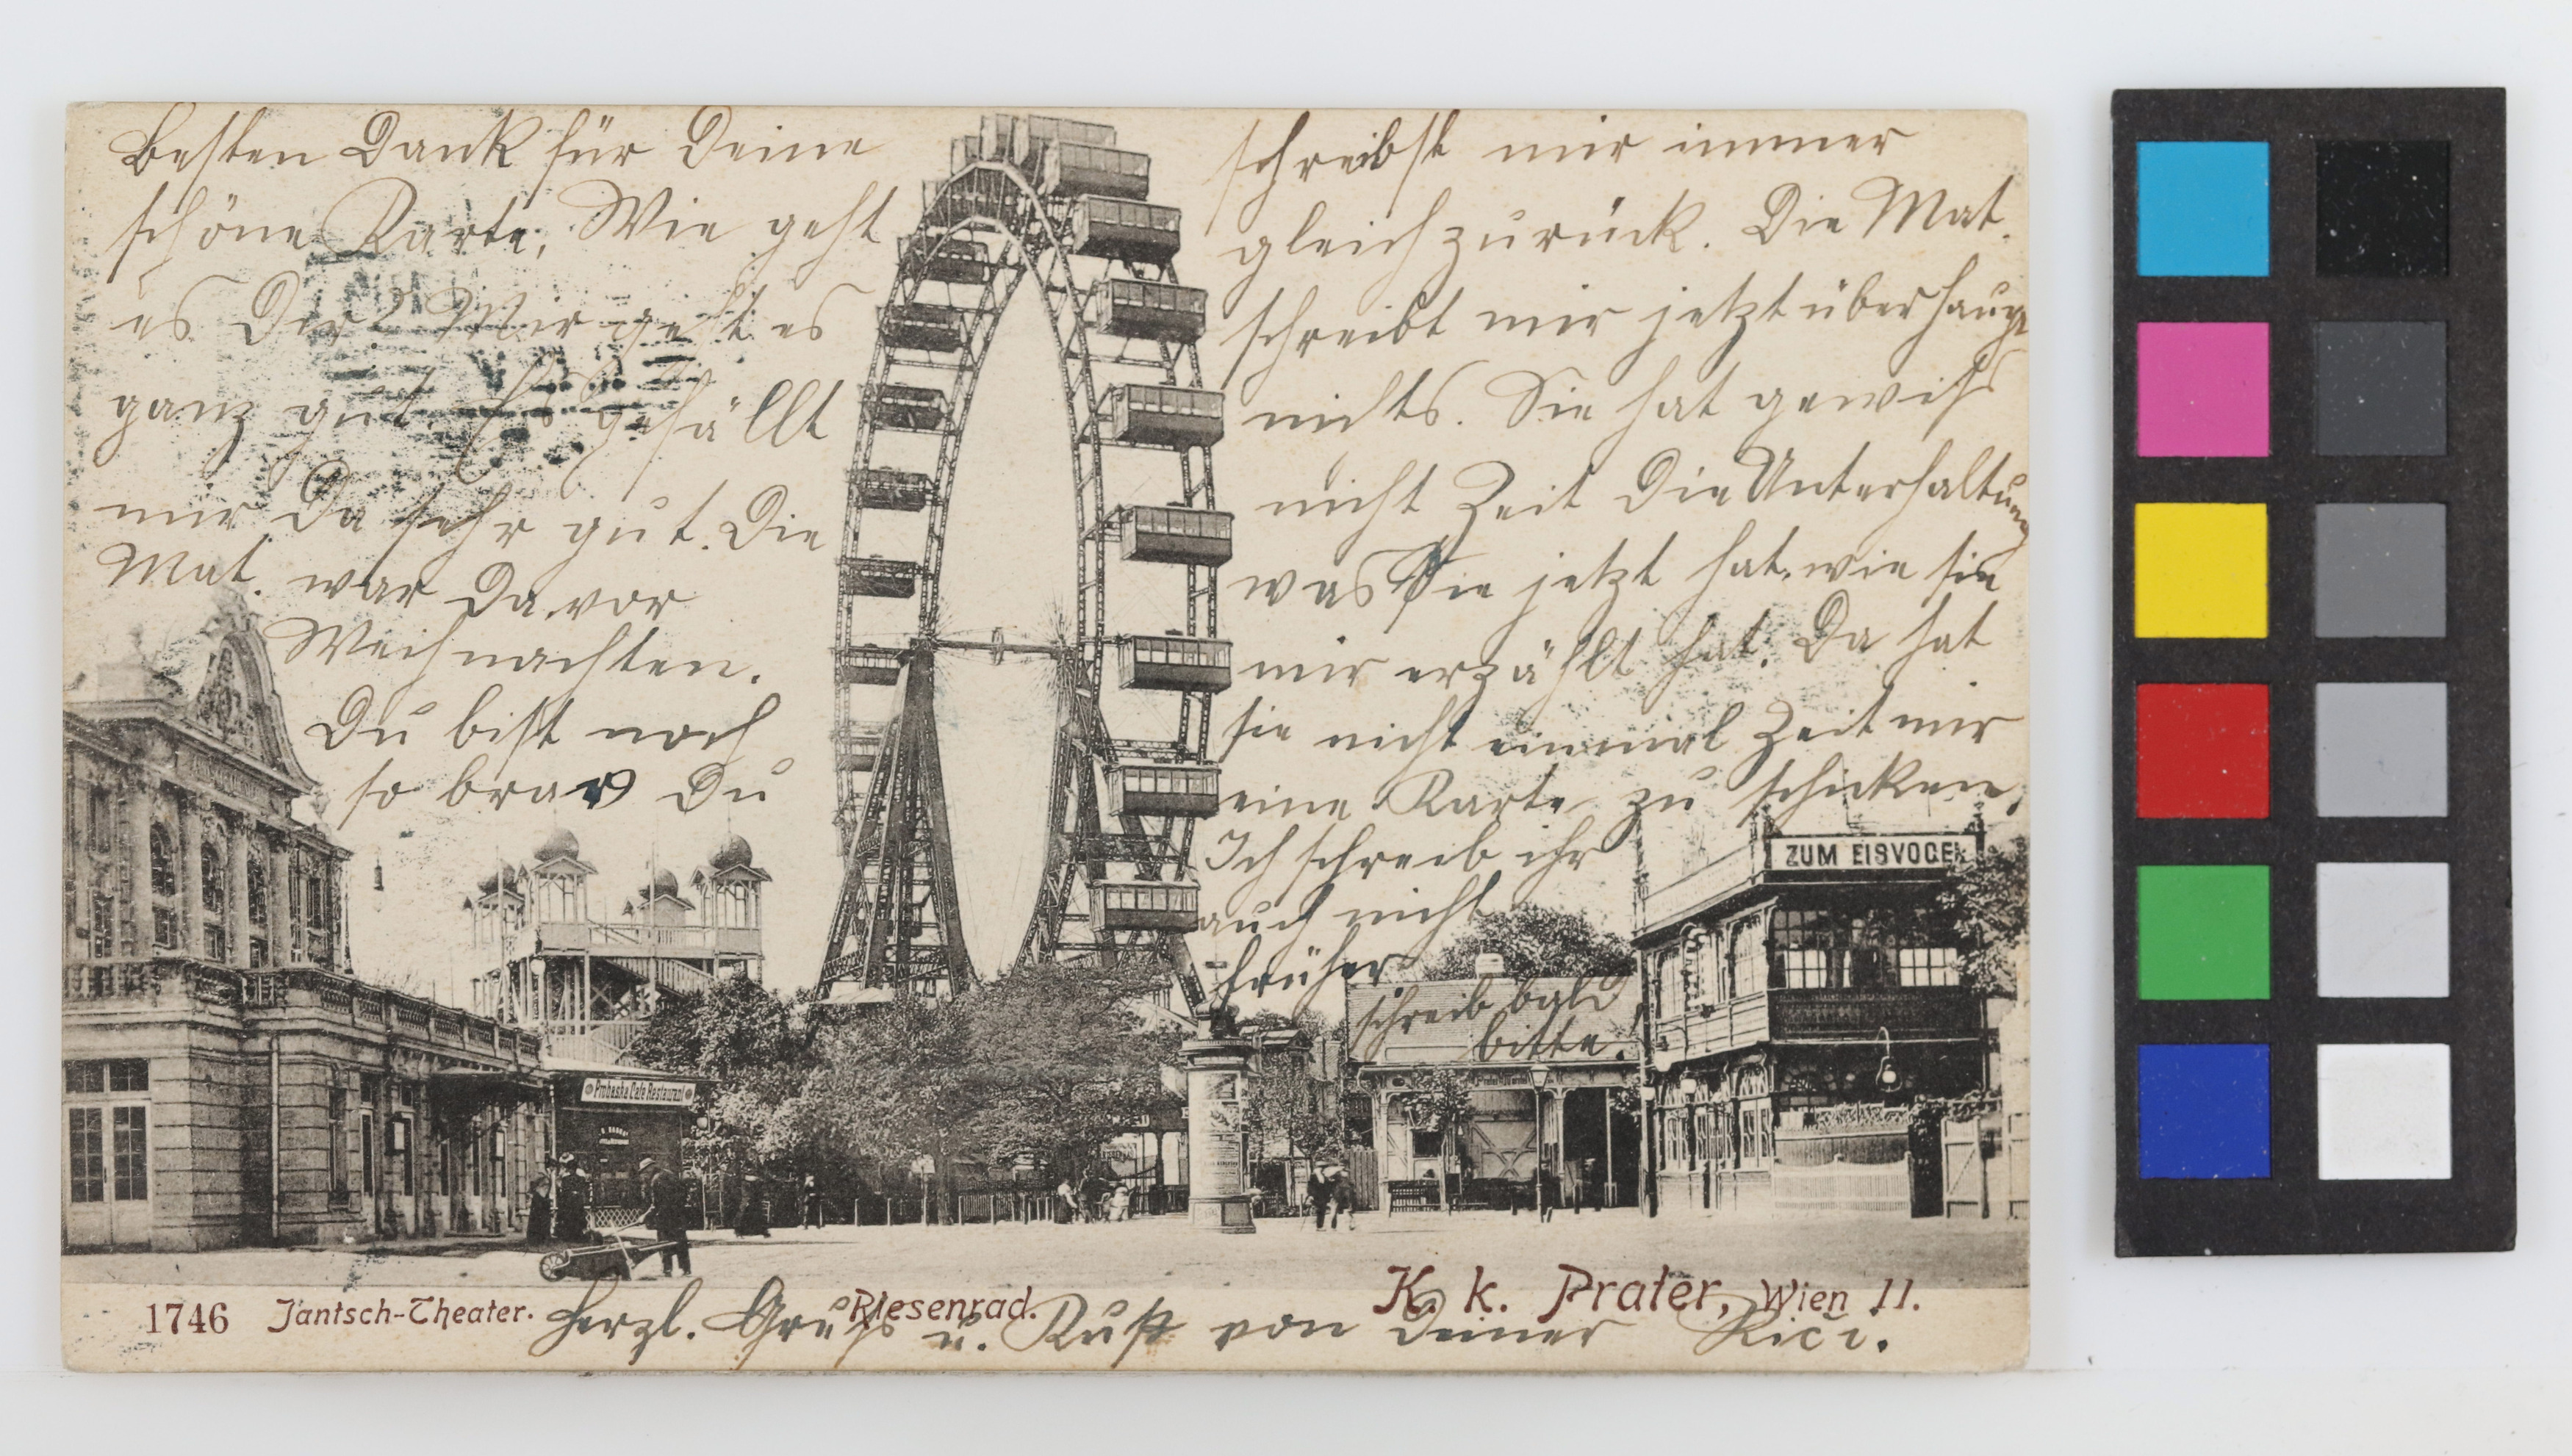 Besten Dank für Deine
schöne Karte. Wie geht
es Dir? Mir geht es
ganz gut. Es gefällt
mir da sehr gut. Die
Mat. war da vor
Weihnachten.
Du bist noch
so brav Du
schreibst mir immer
gleich zurück. Die Mat.
schreibt mir jetzt überhaupt
nichts. Sie hat gewiß
nicht Zeit die Unterhaltung
was Sie jetzt hat, wie sie
mir erzählt hat. Da hat
sie nicht einmal Zeit mir
eine Karte zu schicken.
Ich schreib ihr
auch nicht
früher
schreib bald
bitte!
ZUM EISVOGEL
Probaska Cafe Restaurant
1746 Jantsch-Theater. Riesenrad. K. k. Prater, Wien II.
Herzl. Gruß u. Kuß von Deiner Rici.